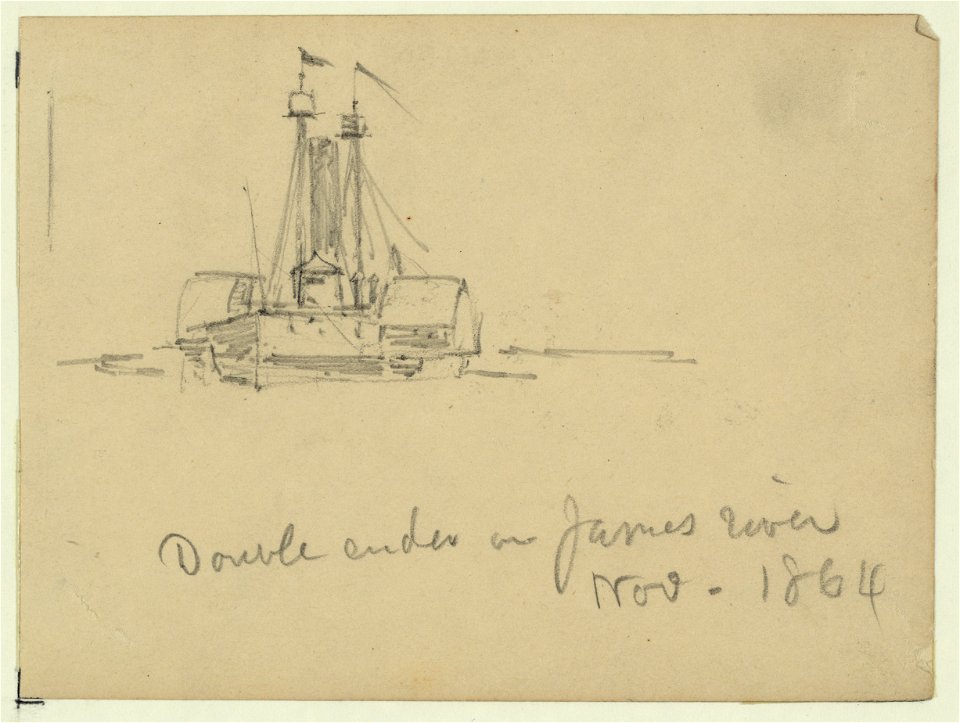 Double ender on James river
Nov. 1864